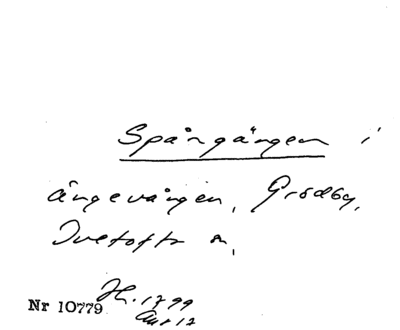 Spångången i
ängevången, Grödby,
Ivetofta sn,
Nr 10779 Jb. 1799
Akt 12